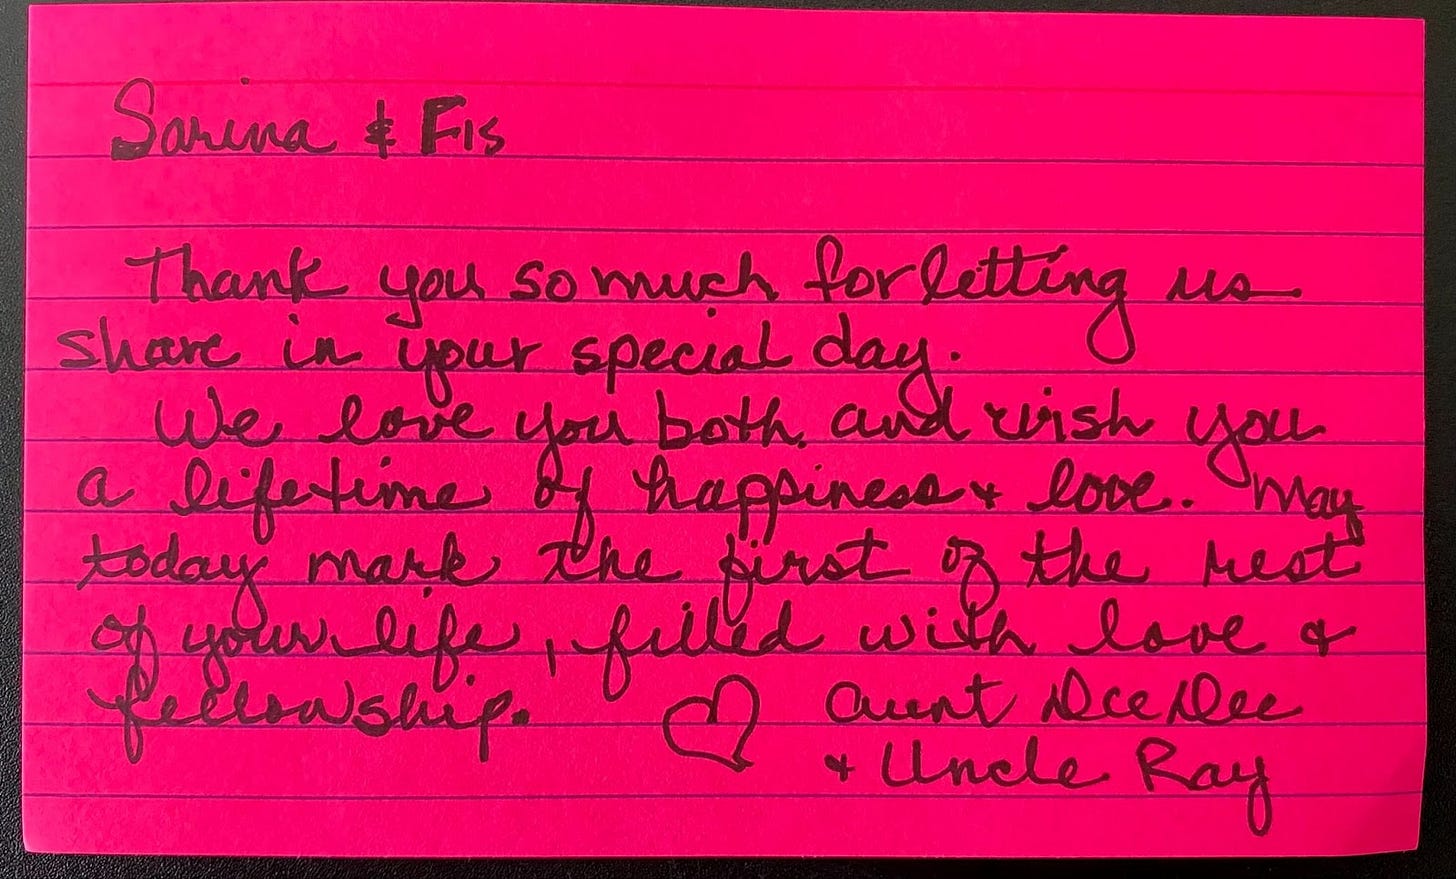 Sarina & Fis
Thank you so much for letting us
share in your special day.
We love you both. and wish you
a lifetime of happiness & love. May
today mark the first of the rest
of your life, filled with love &
fellowship. ♡ Aunt DeeDee
& Uncle Ray